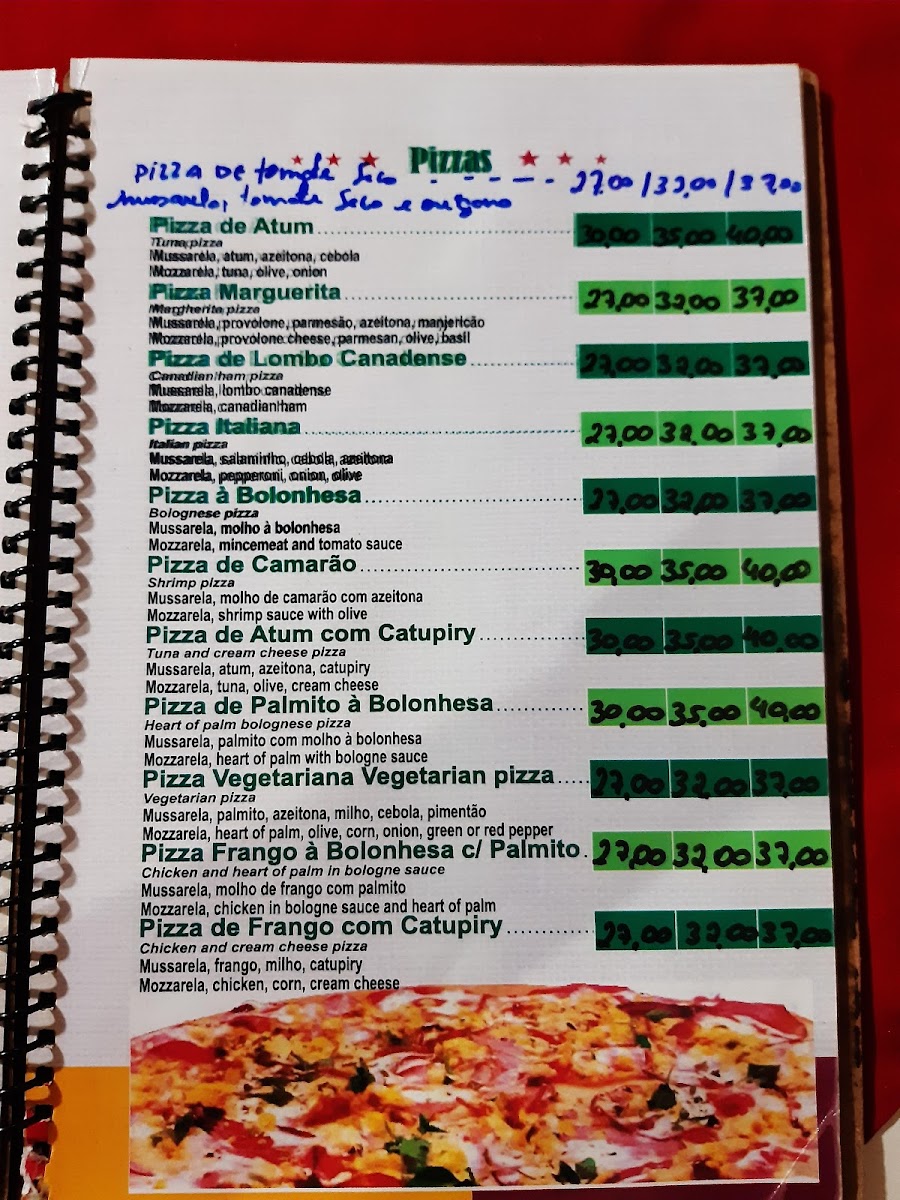 Pizzas
Pizza de tomate seco - - - - - 27,00 / 32,00 / 37,00
mussarela, tomate seco e oregano
Pizza de Atum 30,00 35,00 40,00
Tuna pizza
Mussarela, atum, azeitona, cebola
Mozzarela, tuna, olive, onion
Pizza Marguerita 27,00 32,00 37,00
Margherita pizza
Mussarela, provolone, parmesão, azeitona, manjericão
Mozzarela, provolone cheese, parmesan, olive, basil
Pizza de Lombo Canadense 27,00 32,00 37,00
Canadian ham pizza
Mussarela, lombo canadense
Mozzarela, canadian ham
Pizza Italiana 27,00 32,00 37,00
Italian pizza
Mussarela, salaminho, cebola, azeitona
Mozzarela, pepperoni, onion, olive
Pizza à Bolonhesa 27,00 32,00 37,00
Bolognese pizza
Mussarela, molho à bolonhesa
Mozzarela, mincemeat and tomato sauce
Pizza de Camarão 30,00 35,00 40,00
Shrimp pizza
Mussarela, molho de camarão com azeitona
Mozzarela, shrimp sauce with olive
Pizza de Atum com Catupiry 30,00 35,00 40,00
Tuna and cream cheese pizza
Mussarela, atum, azeitona, catupiry
Mozzarela, tuna, olive, cream cheese
Pizza de Palmito à Bolonhesa 30,00 35,00 40,00
Heart of palm bolognese pizza
Mussarela, palmito com molho à bolonhesa
Mozzarela, heart of palm with bologne sauce
Pizza Vegetariana Vegetarian pizza 27,00 32,00 37,00
Vegetarian pizza
Mussarela, palmito, azeitona, milho, cebola, pimentão
Mozzarela, heart of palm, olive, corn, onion, green or red pepper
Pizza Frango à Bolonhesa c/ Palmito 27,00 32,00 37,00
Chicken and heart of palm in bologne sauce
Mussarela, molho de frango com palmito
Mozzarela, chicken in bologne sauce and heart of palm
Pizza de Frango com Catupiry 27,00 32,00 37,00
Chicken and cream cheese pizza
Mussarela, frango, milho, catupiry
Mozzarela, chicken, corn, cream cheese